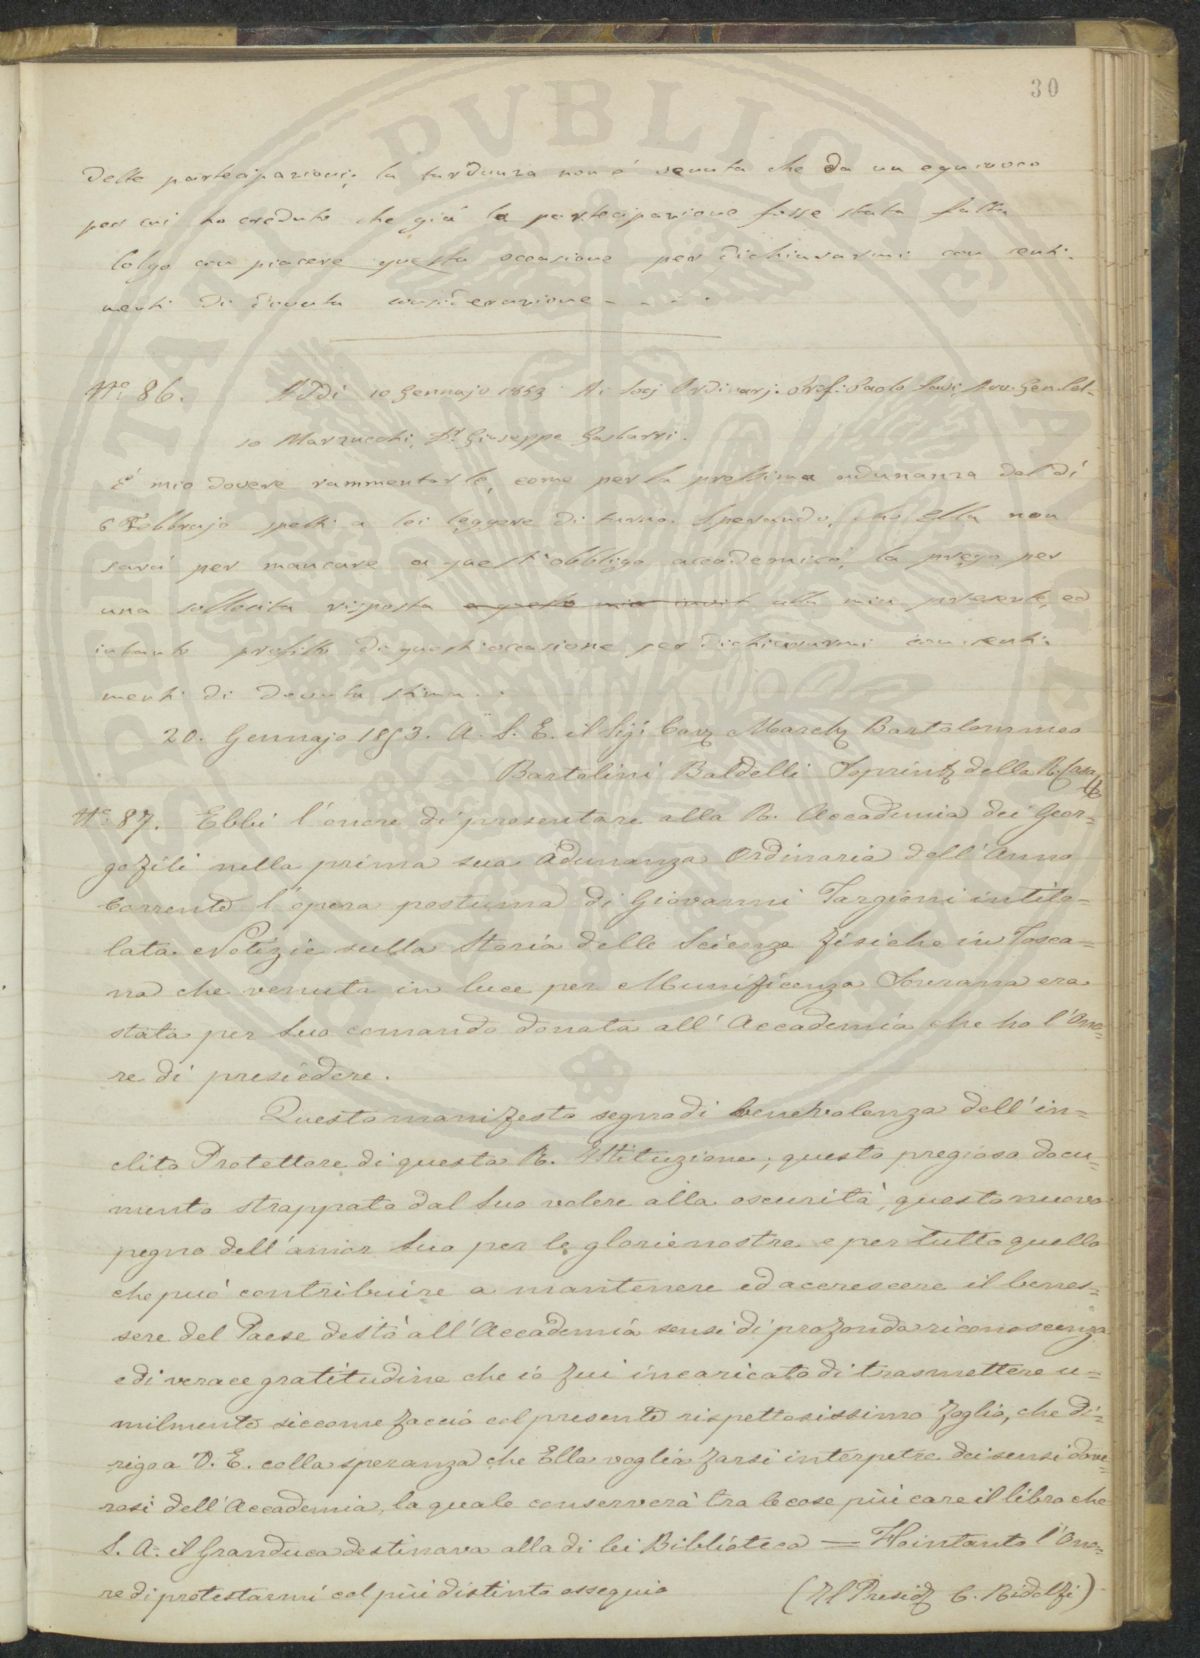 30
delle partecipazioni; la tardanza non è venuta che da un equivoco
per cui ho creduto che già la partecipazione fosse stata fatta
Colgo con piacere questa occasione per dichiararmi con senti-
menti di dovuta considerazione - - - -
No. 86. Addi 10 Gennajo 1853 Ai Socj Ordinarj. Prof. Paolo Savi, Avv. Gen. Cel-
so Marzucchi, Dr. Giuseppe Gasbarri.
È mio dovere rammentarle, come per la prossima adunanza del dì
6 Febbrajo spetti a lei leggere di turno. Sperando, che ella non
sarà per mancare a quest'obbligo accademico, la prego per
una sollecita risposta a questo mio invit alla mia presente, ed
intanto profitto di quest'occasione per dichiararmi con senti-
menti di dovuta stima . .
20. Gennajo 1853. A S. E. il Sig. Cav. March. Bartolommeo
Bartolini Baldelli Soprint. della R. Casa
No. 87. Ebbi l'onore di presentare alla R. Accademia dei Geor-
gofili nella prima sua Adunanza Ordinaria dell'Anno
Corrente l'opera postuma di Giovanni Targioni intito-
lata Notizie sulla Storia delle Scienze fisiche in Tosca-
na che venuta in luce per Munificenza Sovrana era
stata per Suo comando donata all'Accademia che ho l'Ono-
re di presiedere.
Questo manifesto segno di benevolenza dell'in-
clito Protettore di questa R. Istituzione, questo pregioso docu-
mento strappato dal Suo volere alla oscurità, questo nuovo
pegno dell'amor Suo per le glorie nostre e per tutto quello
che può contribuire a mantenere ed accrescere il benes-
sere del Paese destò all'Accademia sensi di profonda riconoscenza
e di verace gratitudine che io fui incaricato di trasmettere u-
milmente siccome faccio col presente rispettosissimo foglio, che di-
rigo a V. E. colla speranza che Ella voglia farsi interpetre dei sensi dove-
rosi dell'Accademia, la quale conserverà tra le cose più care il libro che
S. A. il Granduca destinava alla di lei Biblioteca = Ho intanto l'Ono-
re di protestarmi col più distinto ossequio (Il Presid. C. Ridolfi)